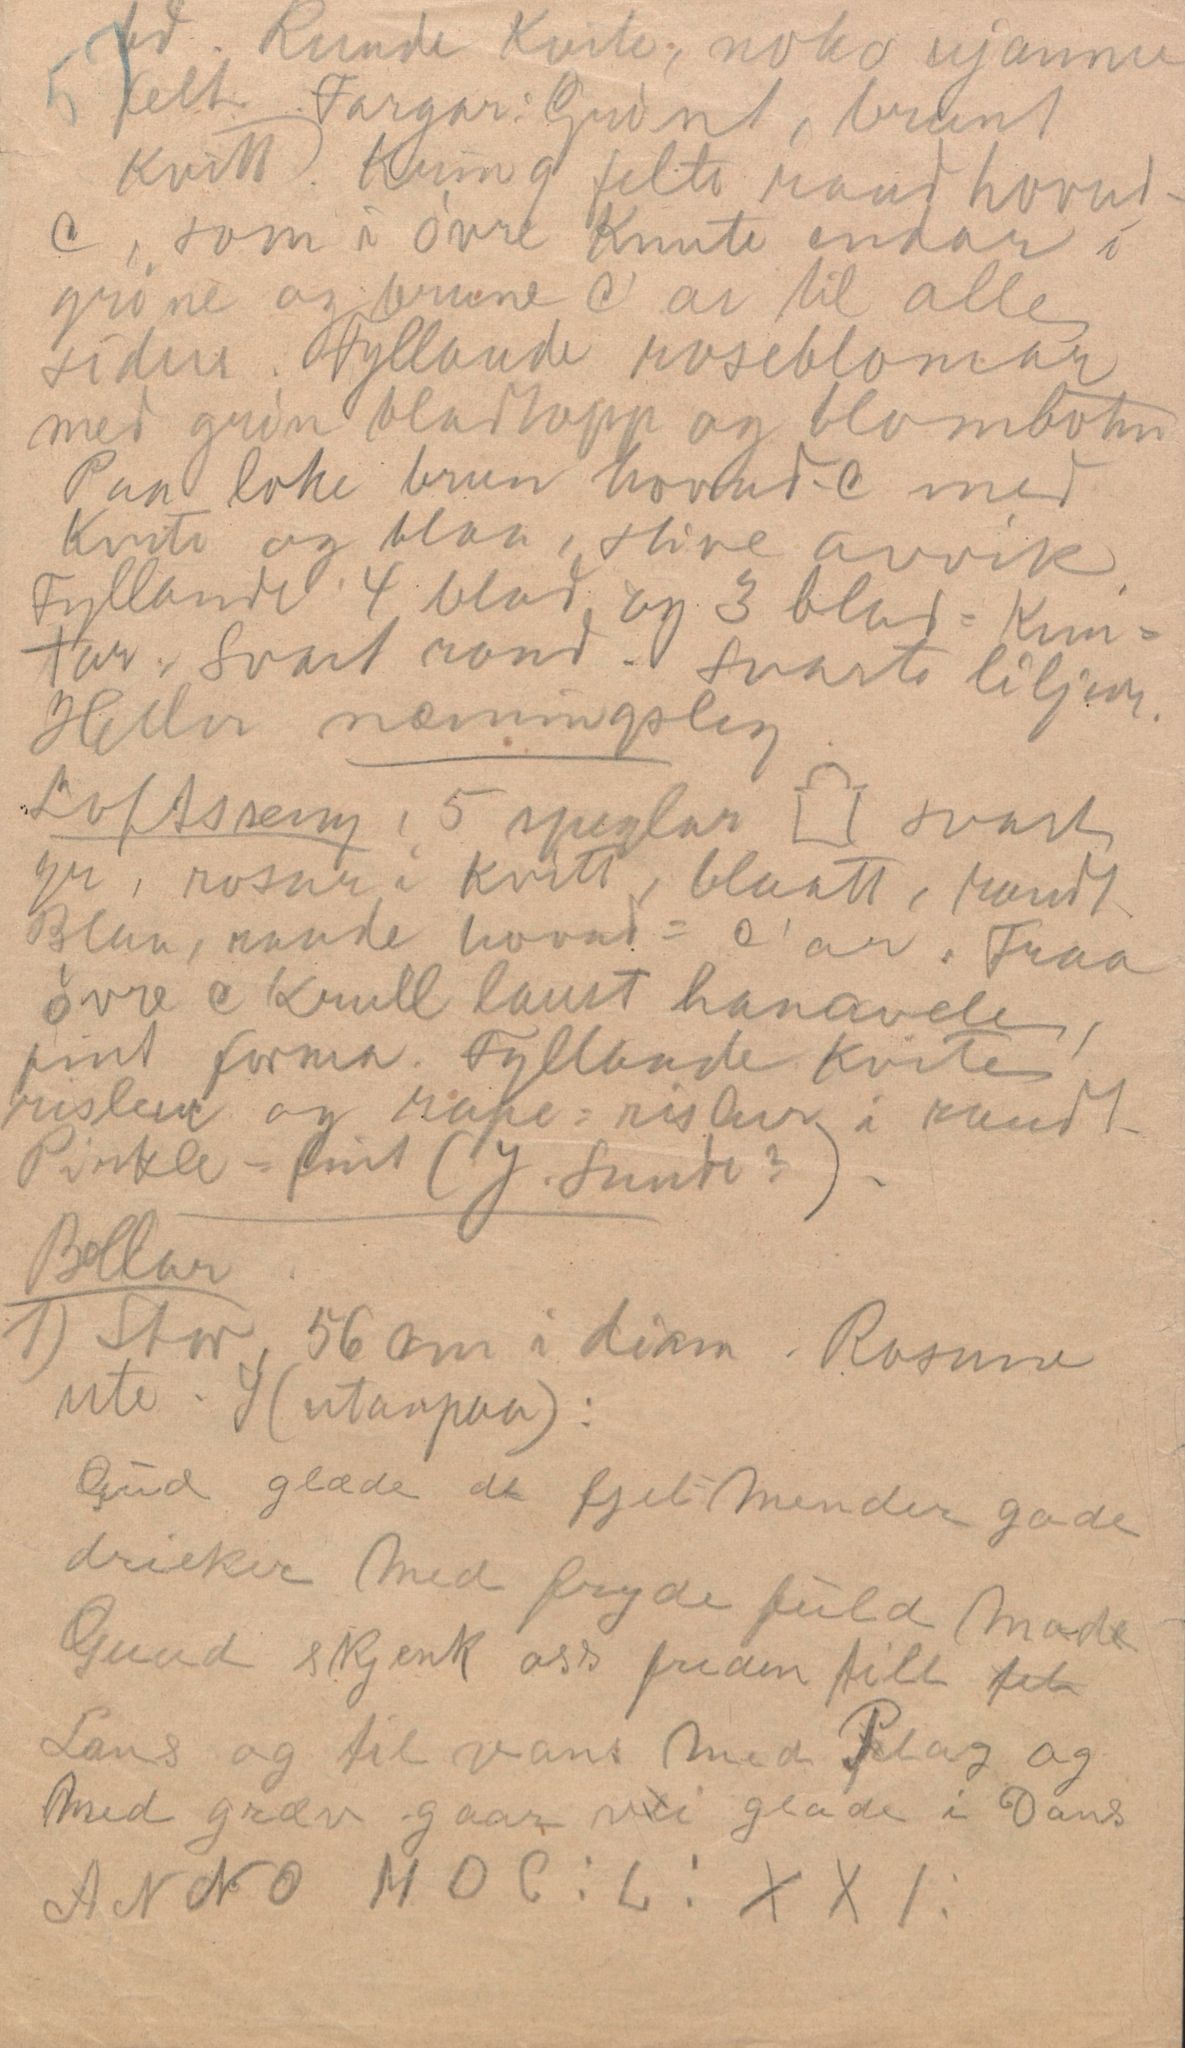 57
td. Runde kvite, noko ujamne
felt. Fargar: Grönt, brunt
kvitt. Kring felti raud hovud-
C, som i övre knute endar i
gröne og brune C'ar til alle
sidur. Fyllande roseblomar
med grön bladtopp og blombotn
Paa loke brun hovud-C med
kvite og blaa, stive avvik.
Fyllande 4 blad og 3 blad-knu-
tar. Svart rand. Svarte liljur.
Heller næmingsleg
Loftsseng, 5 speglar svart
gr, rosur i kvitt, blaatt, raudt
Blaa, raude hovud-C'ar. Fraa
övre C krull laust hanavele,
fint forma. Fyllande kvite
rislur og rape-rislur i raudt
Pirkle-fint (Y. Sunde?).
Bollar
1) Stor, 56 cm i diam. Rosune
ute. Y (utanpaa):
Gud glæde de fjel Mender gode
dricker Med fryde fuld Mode
Guud skjenk oss freden till
Lans og til vans Med Plog og
Med græv gaar vi glade i Dans
ANNO MDC:L:XXI: